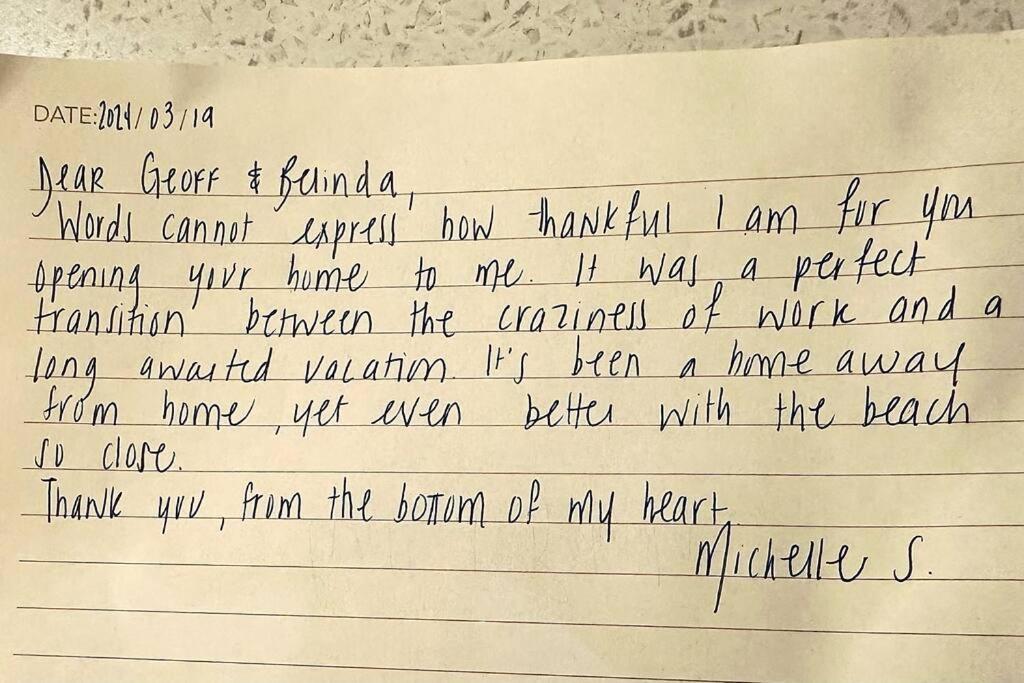 DATE: 2024/03/19
Dear Geoff & Belinda,
Words cannot express how thankful I am for you
opening your home to me. It was a perfect
transition between the craziness of work and a
long awaited vacation. It's been a home away
from home, yet even better with the beach
so close.
Thank you, from the bottom of my heart,
Michelle S.